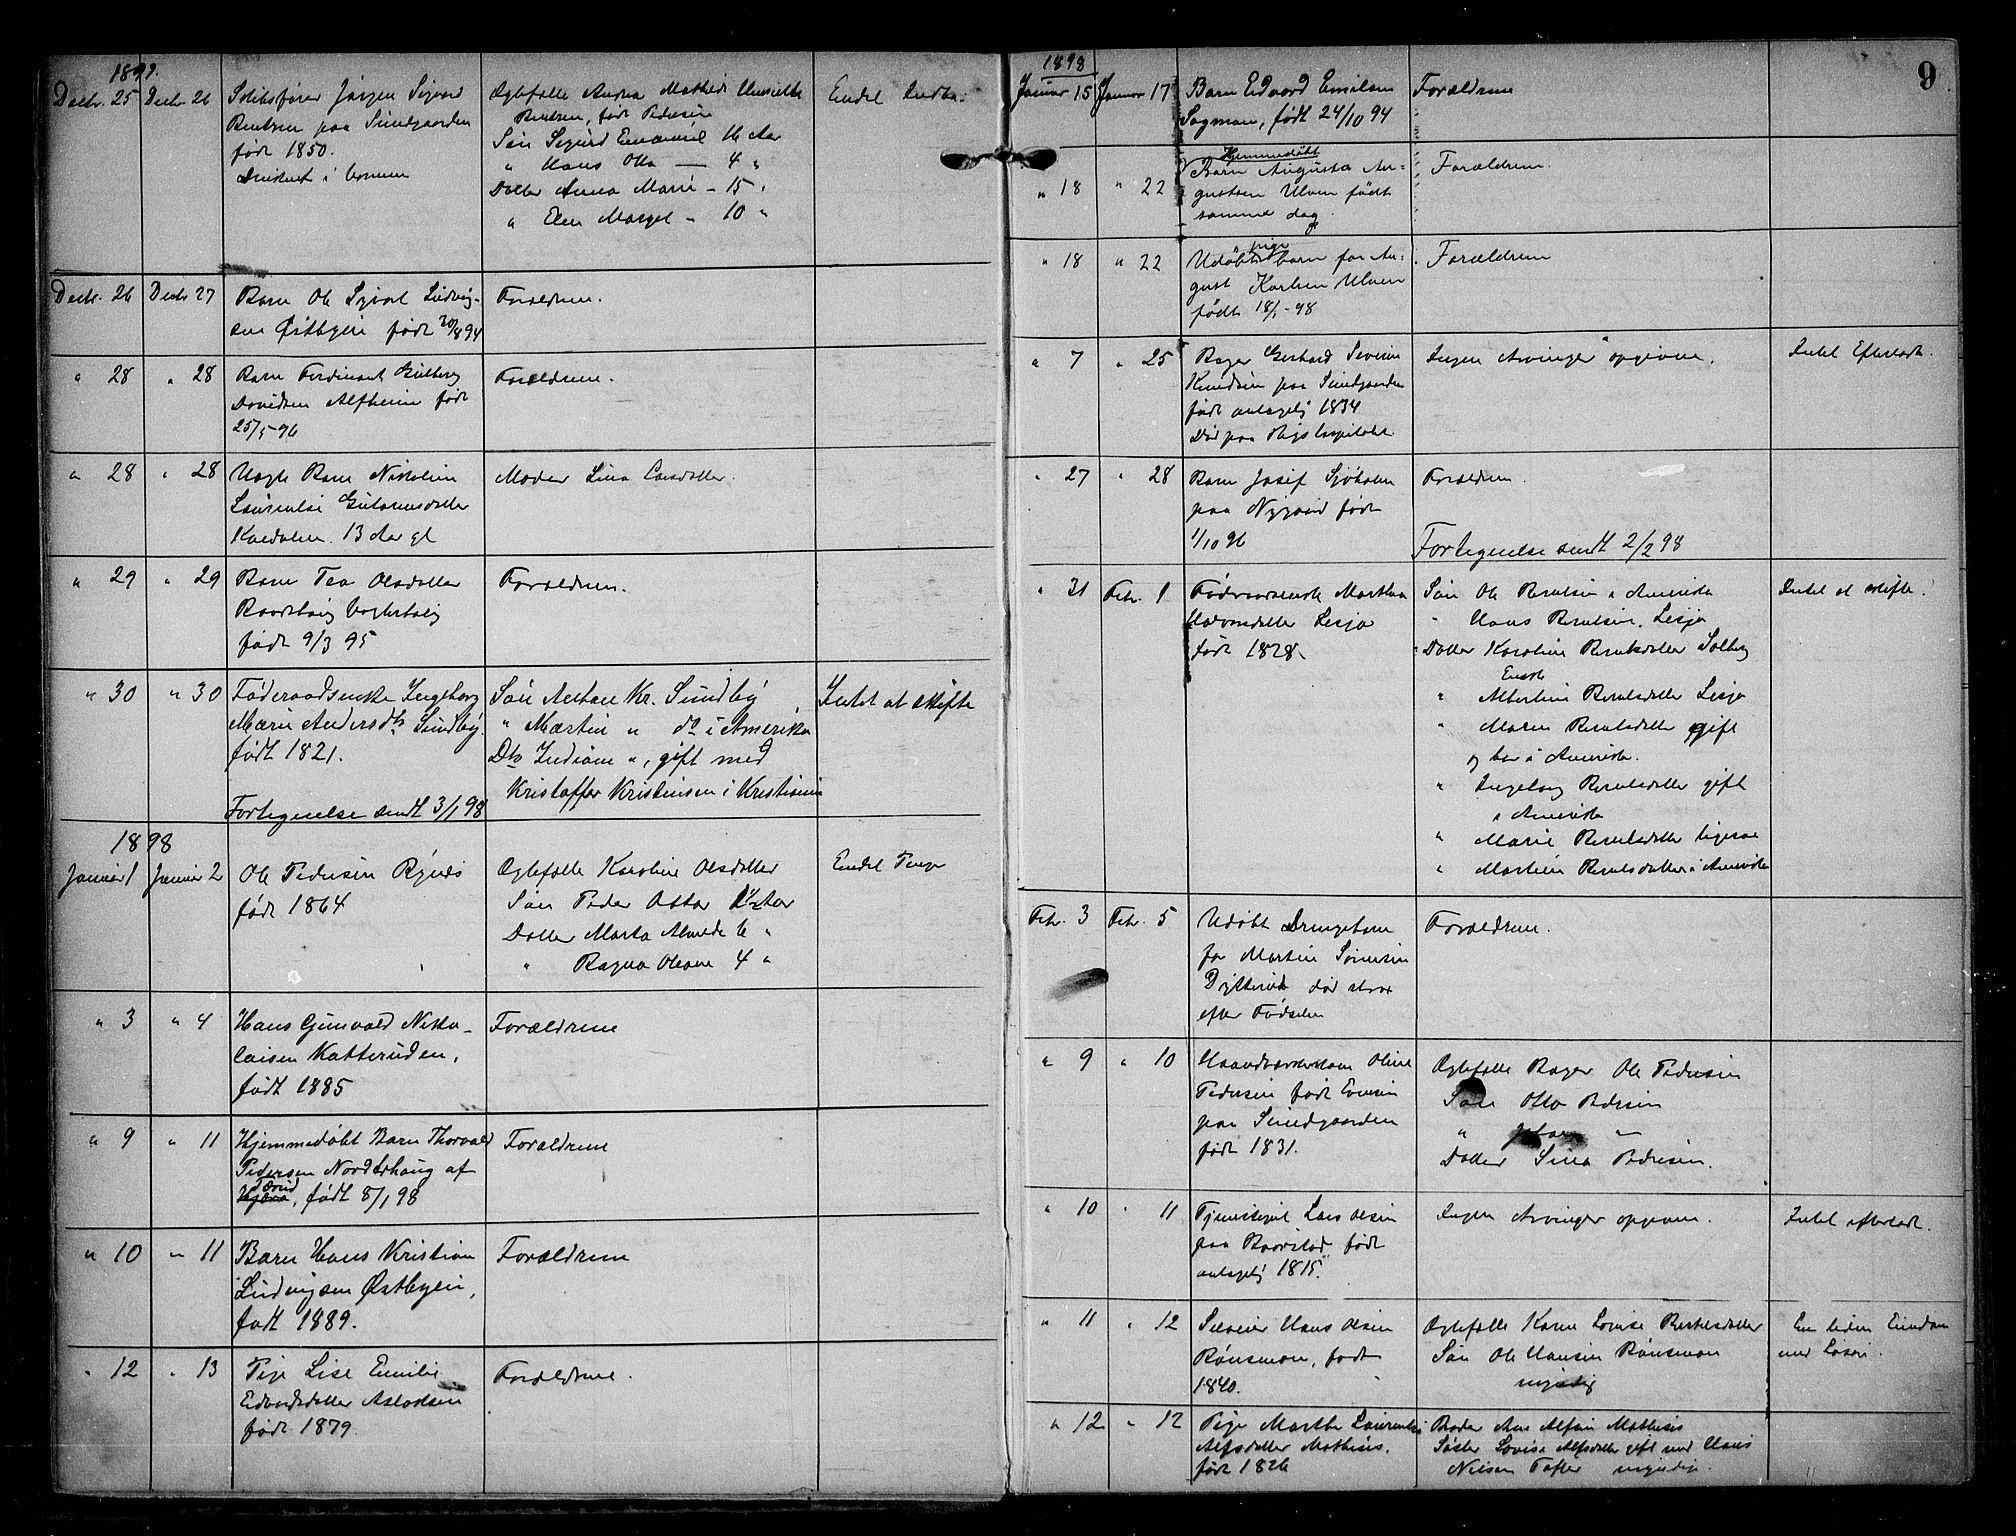 1897.
Decbr. 25 Decbr. 26 Jørgen Sigvard
Berntsen paa Sundgaarden
født 1850.
Ægtefælle Andrea Mathilde Henriette
Berntsen, født Pedersen
Søn Sigurd Emanuel 16 Aar
" Hans Otto — 4 "
Datter Anna Marie – 15 "
" Elen Margot – 10 "
Endel Indbo.
Decbr. 26 Decbr 27 Barn Ole Sigvol Ludvig-
sen Østbyeie født 20/8 94
Forældrene.
" 28 " 28 Barn Ferdinant Gulberg
Davidsen Alfheim født
25/5 96
Forældrene.
" 28 " 28 Uægte Barn Nikoline
Laurentse Gulormsdatter
13 Aar gl
Moder Lina Larsdatter.
" 29 " 29 Barn Tea Olsdatter
født 9/3 95
Forældrene.
" 30 " 30 Føderaadsenke Ingeborg
Marie Andersdtr Sundby
født 1821.
Søn Anton Kr. Sundby
" Martin " do i Amerika
Dtr Indiane ", gift med
Kristoffer Kristensen i Kristiania
Intet at skifte
Fortegnelse sendt 3/1 98
1898
Januar 1 Januar 2 Ole Pedersen Rynes
født 1864
Ægtefælle Karoline Olsdatter
Søn Peder Ottar 1½ Aar
Datter Marta Almede 6 "
" Ragna Oleane 4 "
Endel Penge
" 3 " 4 Hans Gunvald Niko-
laisen Katteruden,
født 1885
Forældrene
" 9 " 11 Hjemmedøbt Barn Thorvald
Pedersen Nordbyhaug af
født 8/1 98
Forældrene
" 10 " 11 Barn Hans Kristian
Ludvigsen Østbyeie,
født 1889.
Forældrene
" 12 " 13 Pige Lise Emilie
Edvardsdatter Aslaksen
født 1879
Forældrene.
9
1898
Januar 15 Januar 17 Barn Edvard Emilsen
Sagmoen, født 24/10 94
Forældrene
Hjemmedøbt
" 18 " 22 Barn Augusta Au-
gustsen Ulven født
samme dag.
Forældrene.
" 18 " 22 Udøbt pige barn for Au-
gust Karlsen Ulven
født 18/1 -98
Forældrene
" 7 " 25 Bager Gerhard Severin
Knudsen paa Sundgaarden
født antagelig 1834
Død paa Rigshospitalet
Ingen Arvinger opgivne.
Intet Efterladt.
" 27 " 28 Barn Josef Sjøholm
paa Nygaard født
1/10 96
Forældrene.
Fortegnelse sendt 2/2 98
" 31 Febr. 1 Føderaadsenke Marthea
Halvorsdatter Lesja
født 1828
Søn Ole Berntsen i Amerika
" Hans Berntsen, Lesja
Datter Karoline Berntsdatter Solberg
Enke
" Albertine Berntsdatter Lesja
" Maren Berntsdatter gift
og bor i Amerika.
" Ingeborg Berntsdatter gift
i Amerika
" Marie Berntsdatter ligesaa
" Martine Berntsdatter i Amerika
Intet at skifte.
Febr. 3 Febr. 5 Udøbt Drengebarn
for Martin Sørensen
død strax
efter Fødselen
Forældrene.
" 9 " 10 Haandværkerkone Oline
Pedersen født Evensen
paa Sundgaarden
født 1831.
Ægtefælle Bager Ole Pedersen
Søn Otto Pedersen
" Johan "
Datter Lina Pedersen.
" 10 " 11 Lars Olsen
paa Baarstad født
antagelig 1815.
Ingen Arvinger opgivne.
Intet efterladt.
" 11 " 12 Selveier Hans Olsen
Rønsmoen, født
1840.
Ægtefælle Karen Lovise Bertelsdatter
Søn Ole Hansen Rønsmoen
myndig
En liden Eiendom
med Løsøre.
" 12 " 12 Pige Marthe Laurentse
Alfsdatter Mathisis.
født 1826
Broder Arne Alfsen Mathisis
Søster Lovise Alfsdatter gift med Hans
Nilsen Tofter myndige.